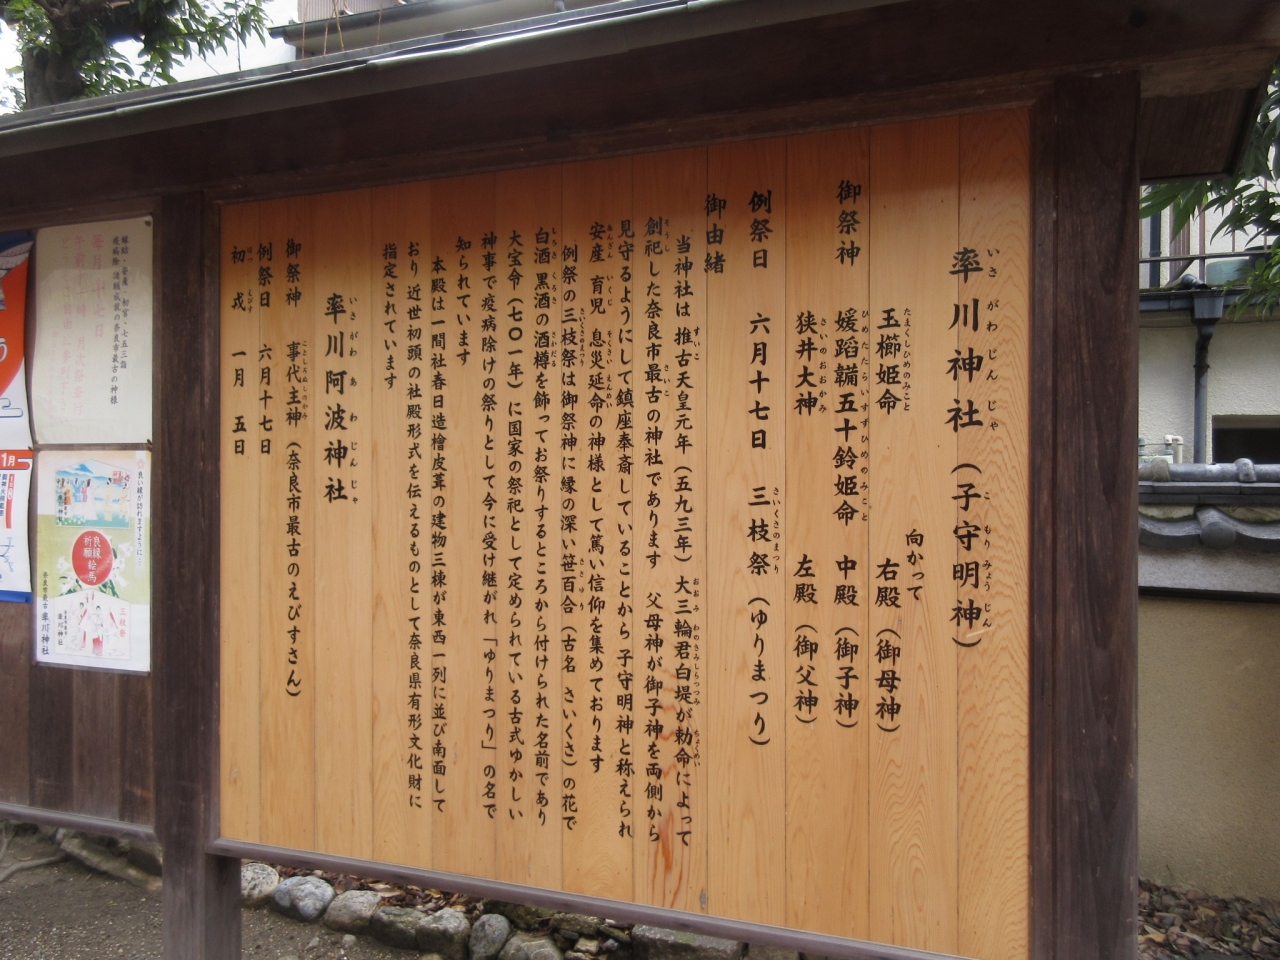 率川神社（子守明神）
向かって
玉櫛姫命　右殿（御母神）
御祭神　媛蹈韛五十鈴姫命　中殿（御子神）
狭井大神　左殿（御父神）
例祭日　六月十七日　三枝祭（ゆりまつり）
御由緒
当神社は 推古天皇元年（五九三年）大三輪君白堤が勅命によって
創祀した奈良市最古の神社であります　父母神が御子神を両側から
見守るようにして鎮座奉斎していることから 子守明神と称えられ
安産 育児 息災延命の神様として篤い信仰を集めております
例祭の三枝祭は御祭神に縁の深い笹百合（古名 さいくさ）の花で
白酒 黒酒の酒樽を飾ってお祭りするところから付けられた名前であり
大宝令（七〇一年）に国家の祭祀として定められている古式ゆかしい
神事で疫病除けの祭りとして今に受け継がれ「ゆりまつり」の名で
知られています
本殿は一間社春日造檜皮葺の建物三棟が東西一列に並び南面して
おり近世初頭の社殿形式を伝えるものとして奈良県有形文化財に
指定されています
率川阿波神社
御祭神　事代主神（奈良市最古のえびすさん）
例祭日　六月十七日
初戎　一月 五日
毎月十七日
良い縁が訪れますように…
良縁
祈願
絵馬
三枝祭
率川神社
1月